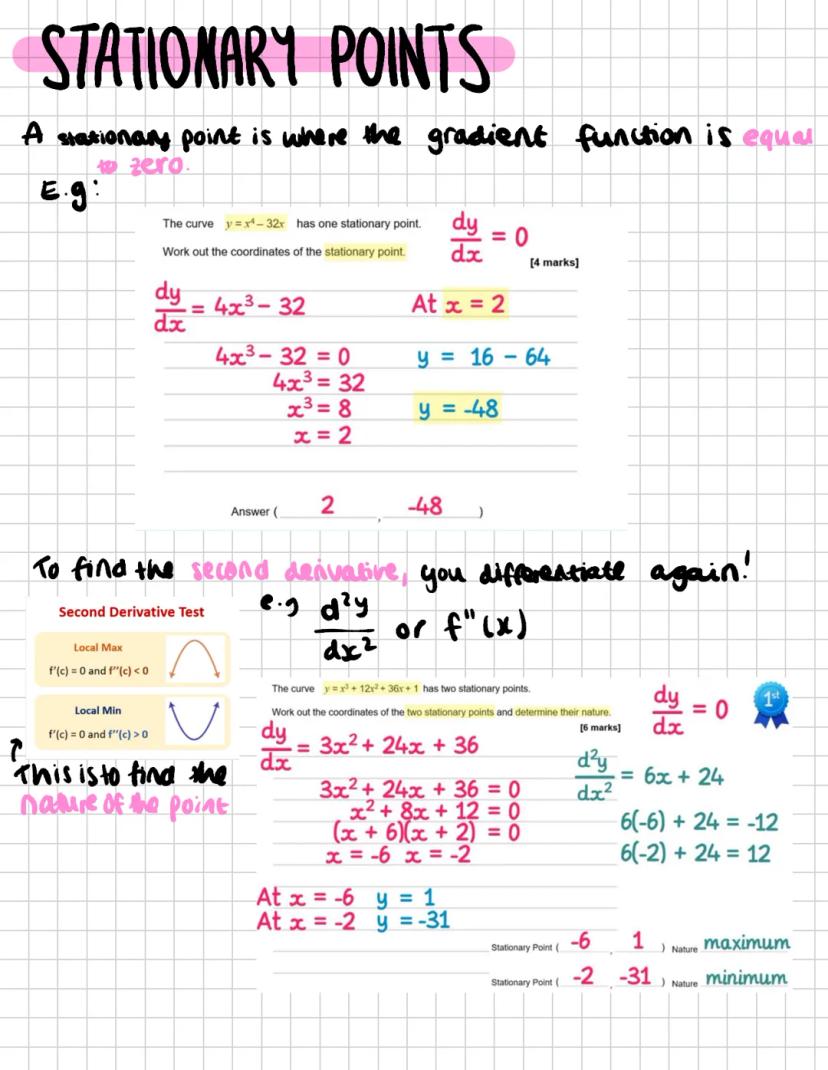 STATIONARY POINTS
A stationary point is where the gradient function is equal
to zero.
E.g:
The curve y = x⁴ – 32x has one stationary point.
Work out the coordinates of the stationary point.
dy/dx = 0
[4 marks]
dy/dx = 4x³ – 32
4x³ – 32 = 0
4x³ = 32
x³ = 8
x = 2
At x = 2
y = 16 – 64
y = -48
Answer ( 2 , -48 )
To find the second derivative, you differentiate again!
e.g d²y/dx² or f"(x)
Second Derivative Test
Local Max
f'(c) = 0 and f''(c) < 0
Local Min
f'(c) = 0 and f''(c) > 0
↑
This is to find the
nature of the point
The curve y = x³ + 12x² + 36x + 1 has two stationary points.
Work out the coordinates of the two stationary points and determine their nature.
[6 marks]
dy/dx = 0
1st
dy/dx = 3x² + 24x + 36
3x² + 24x + 36 = 0
x² + 8x + 12 = 0
(x + 6)(x + 2) = 0
x = -6 x = -2
d²y/dx² = 6x + 24
6(-6) + 24 = -12
6(-2) + 24 = 12
At x = -6 y = 1
At x = -2 y = -31
Stationary Point ( -6 , 1 ) Nature maximum
Stationary Point ( -2 , -31 ) Nature minimum